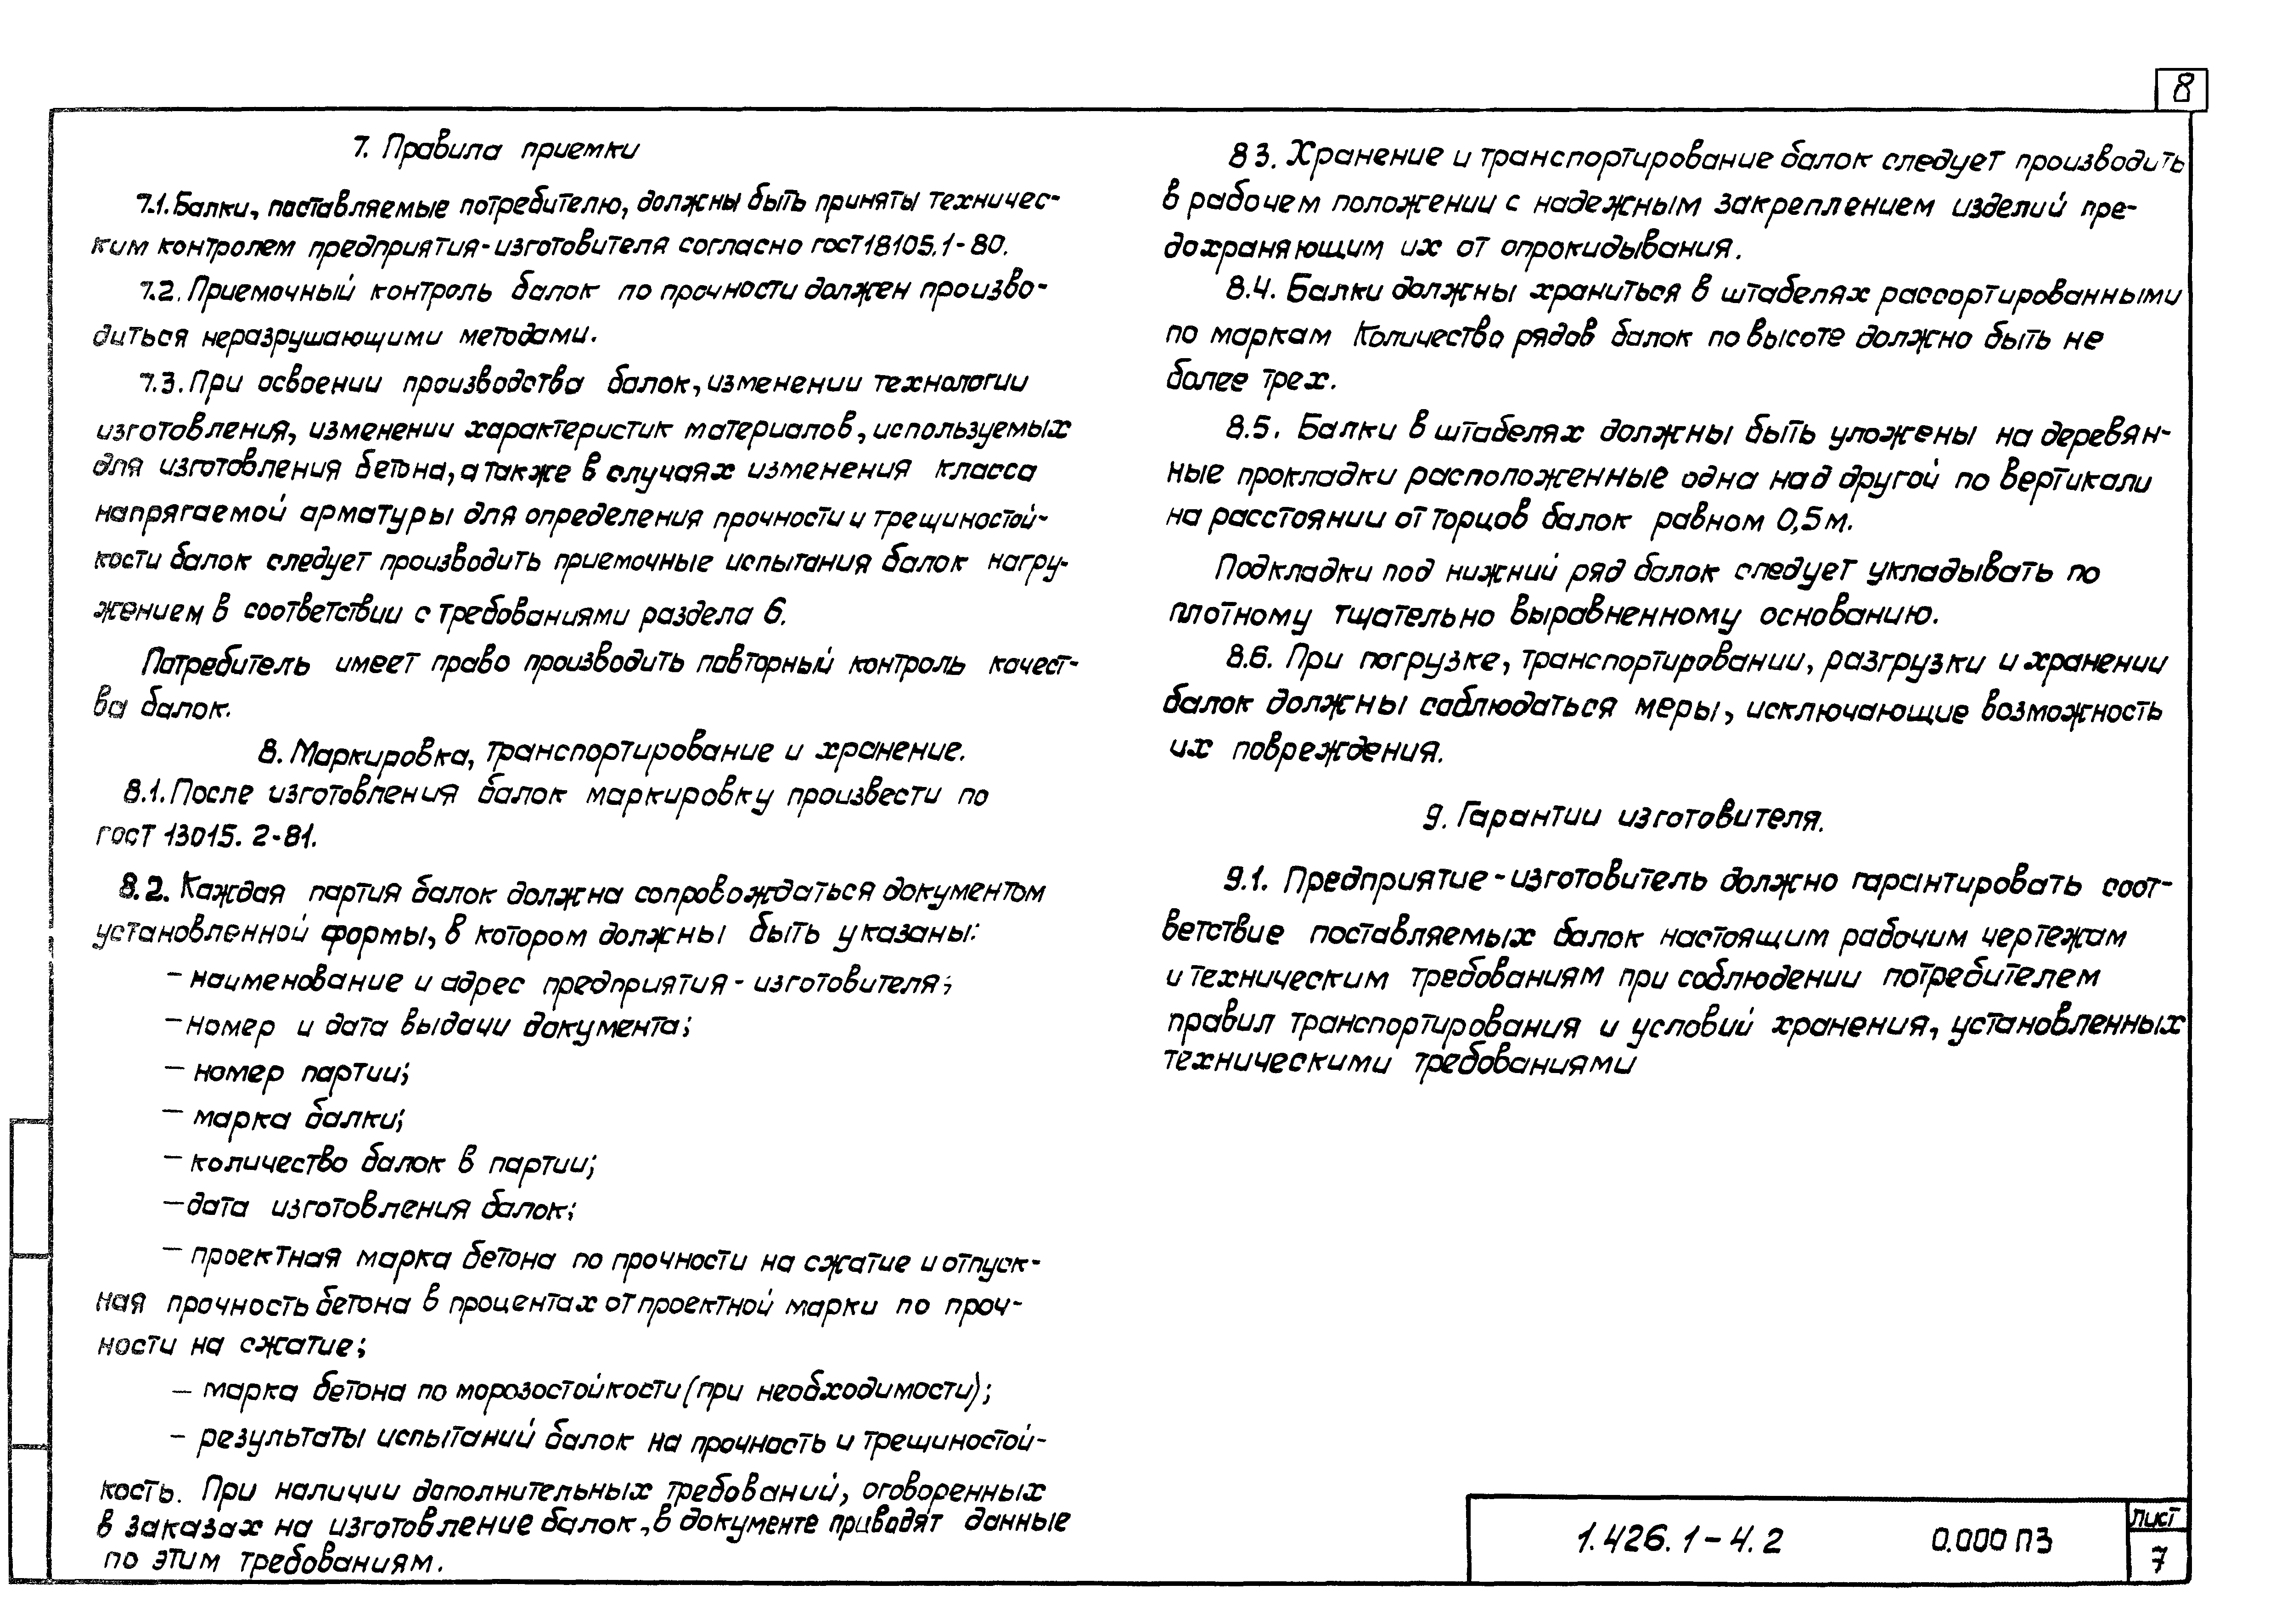 8
7. Правила приемки
7.1. Балки, поставляемые потребителю, должны быть приняты техничес-
ким контролем предприятия-изготовителя согласно гост 18105.1-80.
7.2. Приемочный контроль балок по прочности должен произво-
диться неразрушающими методами.
7.3. При освоении производства балок, изменении технологии
изготовления, изменении характеристик материалов, используемых
для изготовления бетона, а также в случаях изменения класса
напрягаемой арматуры для определения прочности и трещиностой-
кости балок следует производить приемочные испытания балок нагру-
жением в соответствии с требованиями раздела 6.
Потребитель имеет право производить повторный контроль качест-
ва балок.
8. Маркировка, транспортирование и хранение.
8.1. После изготовления балок маркировку произвести по
гост 13015. 2-81.
8.2. Каждая партия балок должна сопровождаться документом
установленной формы, в котором должны быть указаны:
- наименование и адрес предприятия - изготовителя;
- номер и дата выдачи документа;
- номер партии;
- марка балки;
- количество балок в партии;
- дата изготовления балок;
- проектная марка бетона по прочности на сжатие и отпуск-
ная прочность бетона в процентах от проектной марки по проч-
ности на сжатие;
- марка бетона по морозостойкости (при необходимости);
- результаты испытаний балок на прочность и трещиностой-
кость. При наличии дополнительных требований, оговоренных
в заказах на изготовление балок, в документе приводят данные
по этим требованиям.
8 3. Хранение и транспортирование балок следует производить
в рабочем положении с надежным закреплением изделий пре-
дохраняющим их от опрокидывания.
8.4. Балки должны храниться в штабелях рассортированными
по маркам Количество рядов балок по высоте должно быть не
более трех.
8.5. Балки в штабелях должны быть уложены на деревян-
ные прокладки расположенные одна над другой по вертикали
на расстоянии от торцов балок равном 0,5 м.
Подкладки под нижний ряд балок следует укладывать по
плотному тщательно выравненному основанию.
8.6. При погрузке, транспортировании, разгрузки и хранении
балок должны соблюдаться меры, исключающие возможность
их повреждения.
9. Гарантии изготовителя.
9.1. Предприятие - изготовитель должно гарантировать соот-
ветствие поставляемых балок настоящим рабочим чертежам
и техническим требованиям при соблюдении потребителем
правил транспортирования и условий хранения, установленных
техническими требованиями
1.426.1-4.2 0.000 ПЗ
Лист
7